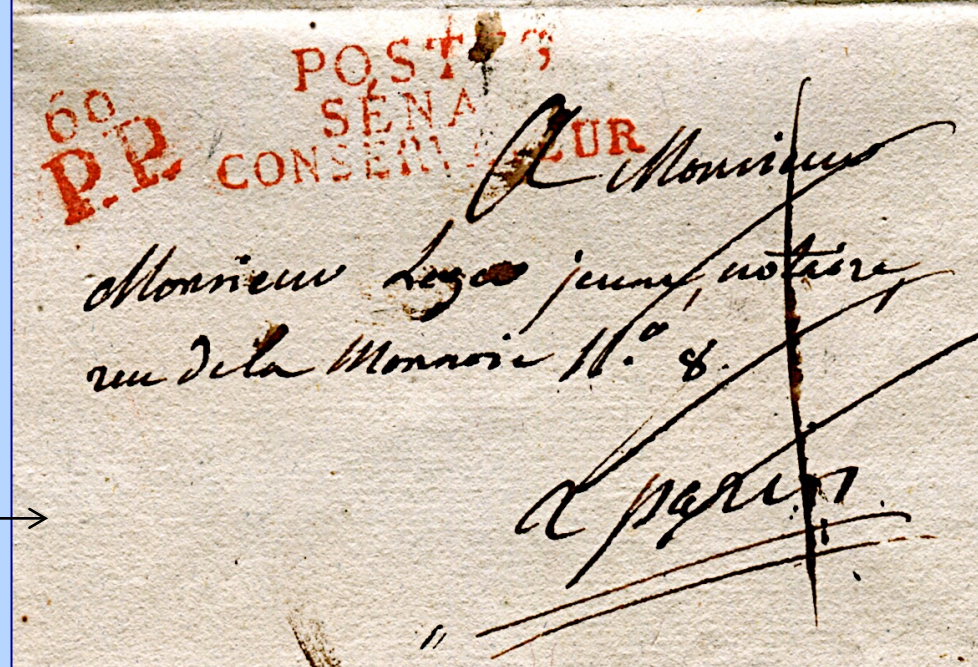 POSTES
SÉNAT
CONSERVATEUR
60
P.P.
A Monsieur
Monsieur jeune, notaire,
rue de la Monnoie N.º 8.
A paris